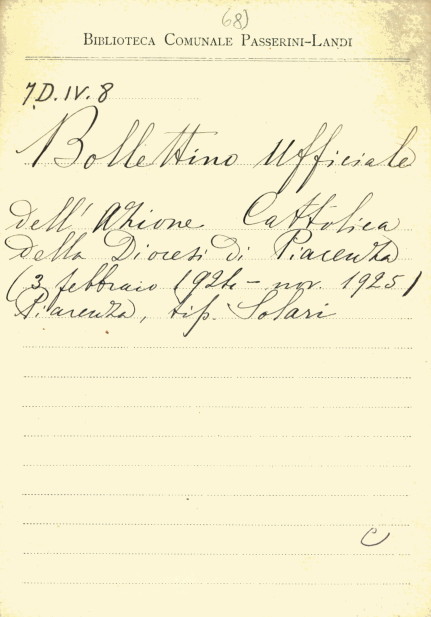 (68)
BIBLIOTECA COMUNALE PASSERINI-LANDI
7D.IV.8
Bollettino Ufficiale
dell'Azione Cattolica
della Diocesi di Piacenza
(3 febbraio 1924 - nov. 1925)
Piacenza, tip. Solari
C